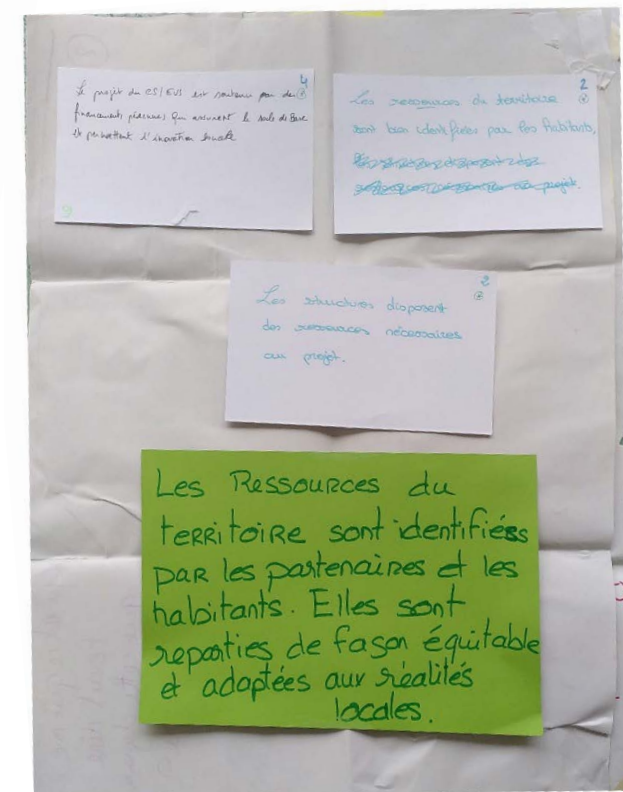 4
Le projet du CS/EVS est soutenu par des
financements pérennes qui assurent le socle de Base
et permettent l'innovation sociale
6
2
Les ressources du territoire
sont bien identifiées par les habitants,
au projet.
2
Les structures disposent
des ressources nécessaires
au projet.
Les Ressources du
territoire sont identifiées
par les partenaires et les
habitants. Elles sont
reparties de façon équitable
et adaptées aux réalités
locales.